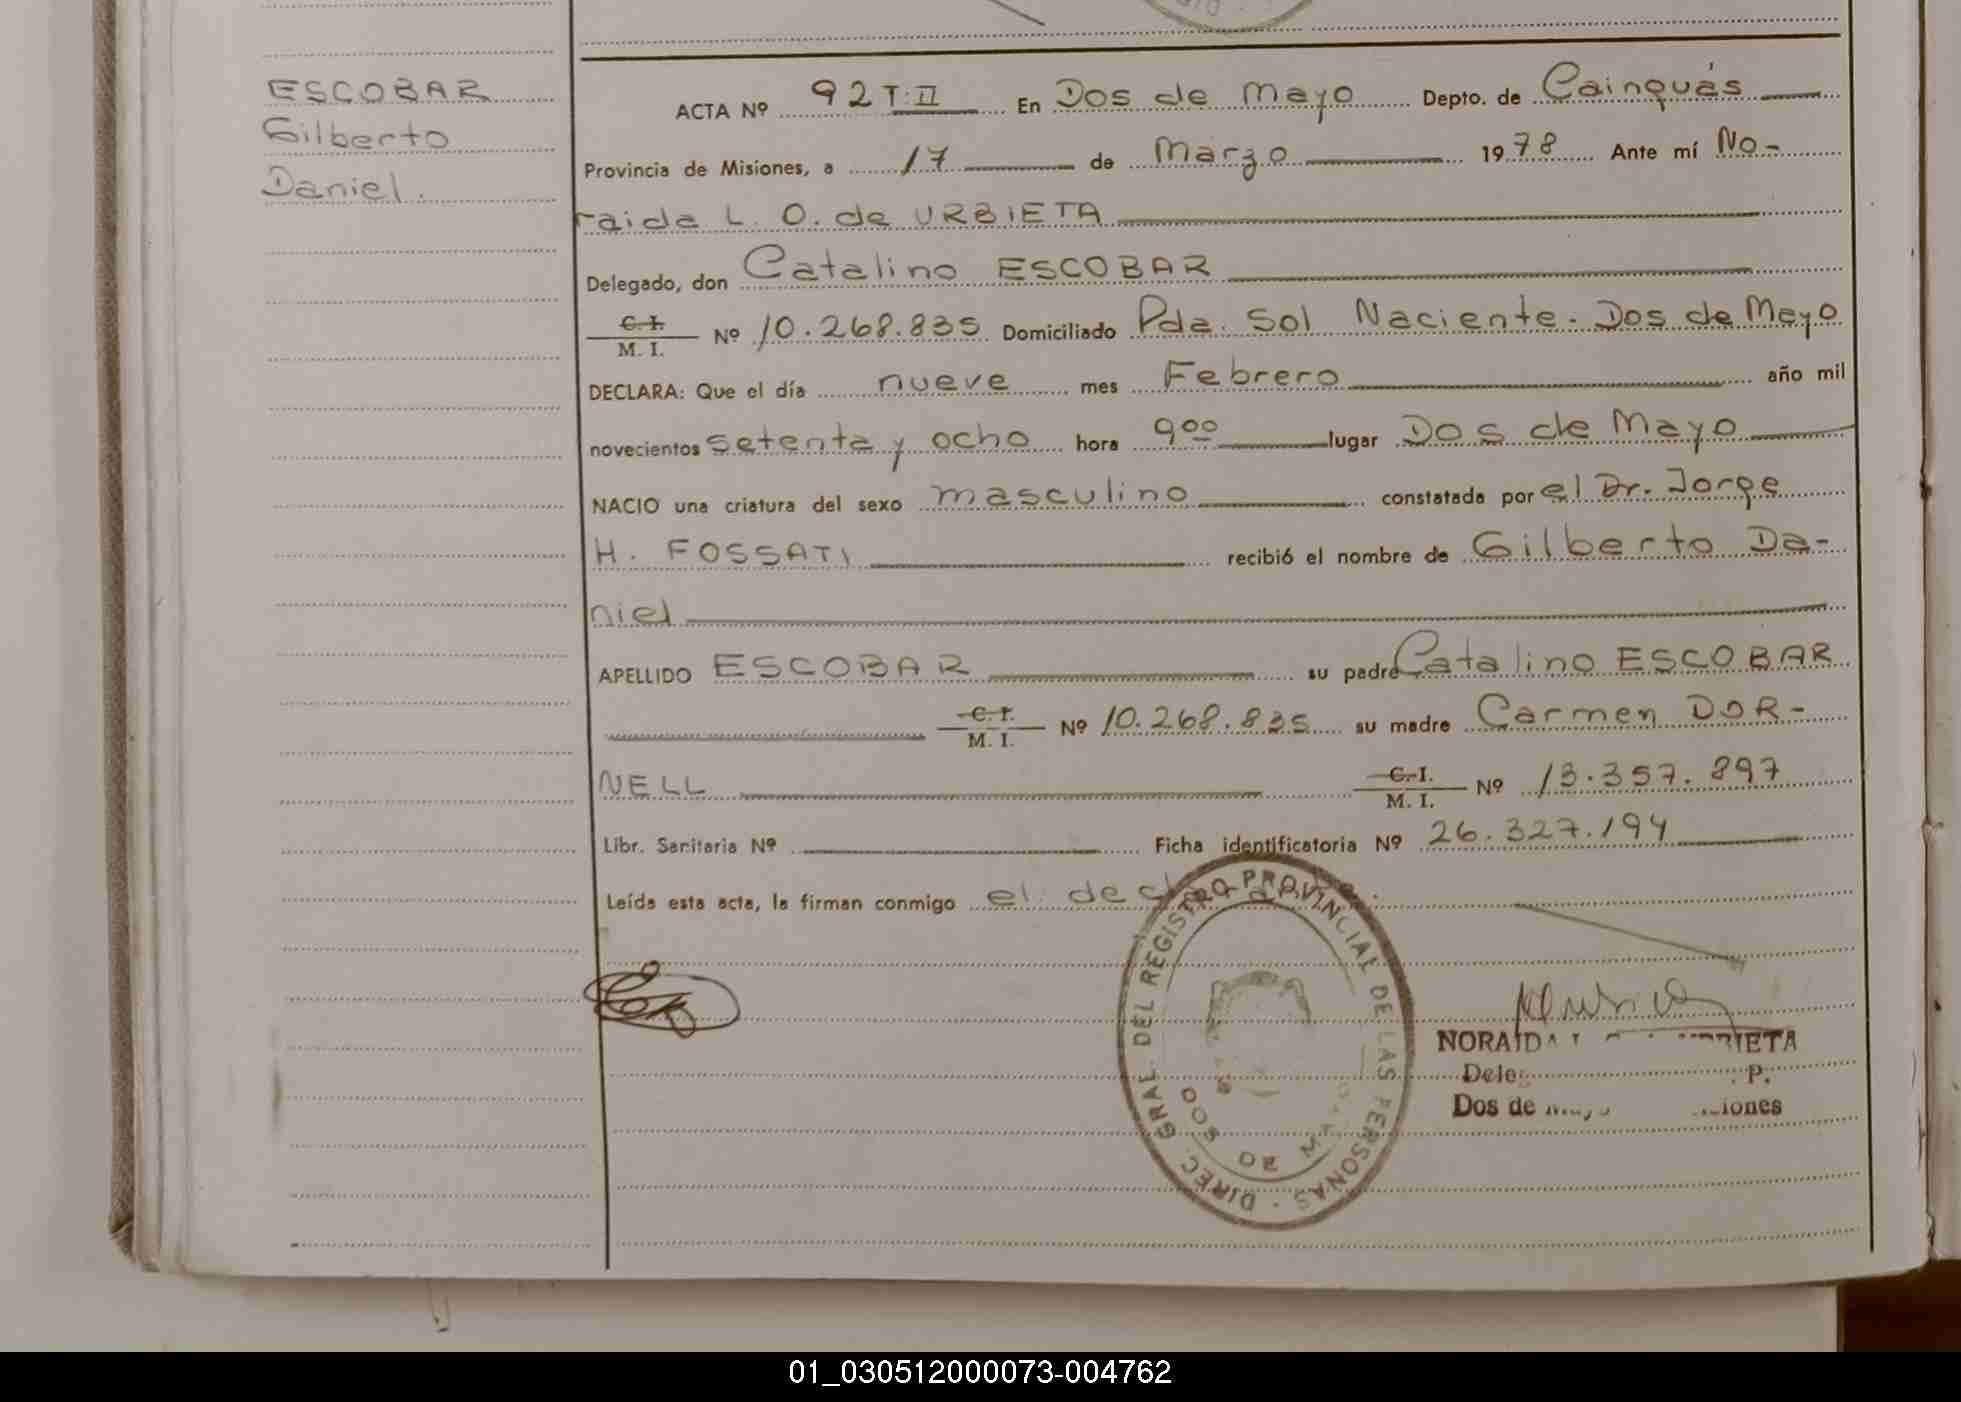 ESCOBAR
Gilberto
Daniel.
ACTA Nº 92 T:II En Dos de Mayo Depto. de Cainguás
Provincia de Misiones, a 17 de Marzo 1978 Ante mí No-
raida L. O. de URBIETA
Delegado, don Catalino ESCOBAR
C. I. / M. I. Nº 10.268.835 Domiciliado Pda. Sol Naciente. Dos de Mayo
DECLARA: Que el día nueve mes Febrero año mil
novecientos setenta y ocho hora 9 00 lugar Dos de Mayo
NACIO una criatura del sexo masculino constatada por el Dr. Jorge
H. FOSSATI recibió el nombre de Gilberto Da-
niel
APELLIDO ESCOBAR su padre Catalino ESCOBAR
C. I. / M. I. Nº 10.268.835 su madre Carmen DOR-
NELL C. I. / M. I. Nº 13.357.897
Libr. Sanitaria Nº Ficha identificatoria Nº 26.327.194
Leída esta acta, la firman conmigo el
DIREC. GRAL. DEL REGISTRO PROVINCIAL DE LAS PERSONAS
DOS DE MAYO
NORAIDA
Dos de
01_030512000073-004762